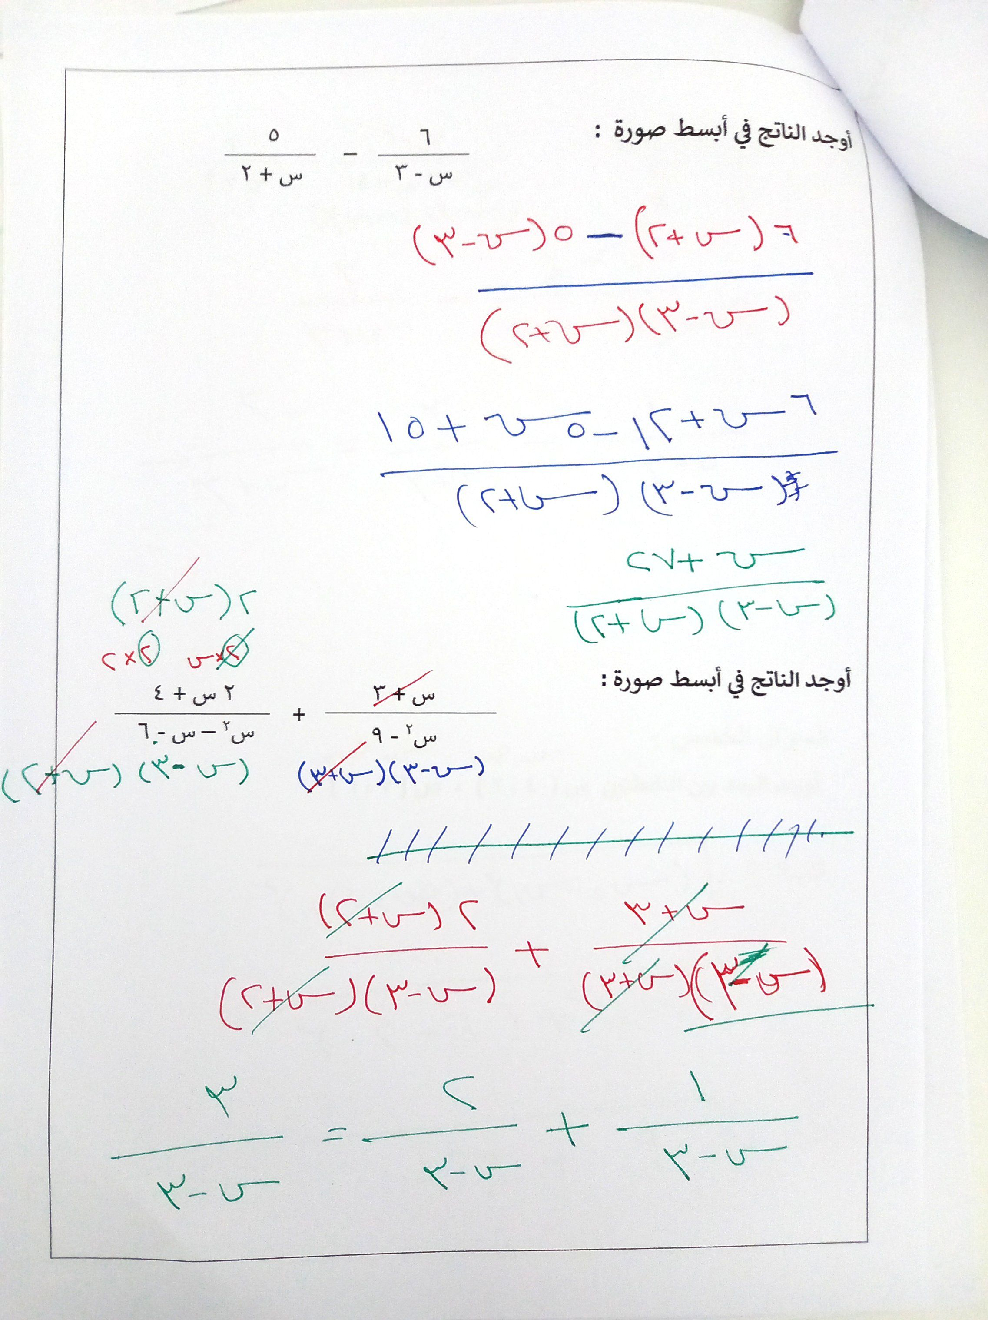 أوجد الناتج في أبسط صورة :
٦ ٥
— –
س - ٣ س + ٢
٦ (س +٢) – ٥ (س -٣)
(س -٣) (س +٢)
٦س +١٢ -٥س +١٥
(س -٣) (س +٢)
س +٢٧
(س -٣) (س +٢)
٢ (س +٢)
٢×س ٢×٢
أوجد الناتج في أبسط صورة :
س + ٣ + ٢ س + ٤
س٢ - ٩ س٢ – س - ٦
(س -٣) (س +٣) (س -٣) (س +٢)
س +٣ + ٢ (س +٢)
(س -٣) (س +٣) (س -٣) (س +٢)
١ + ٢ = ٣
س -٣ س -٣ س -٣